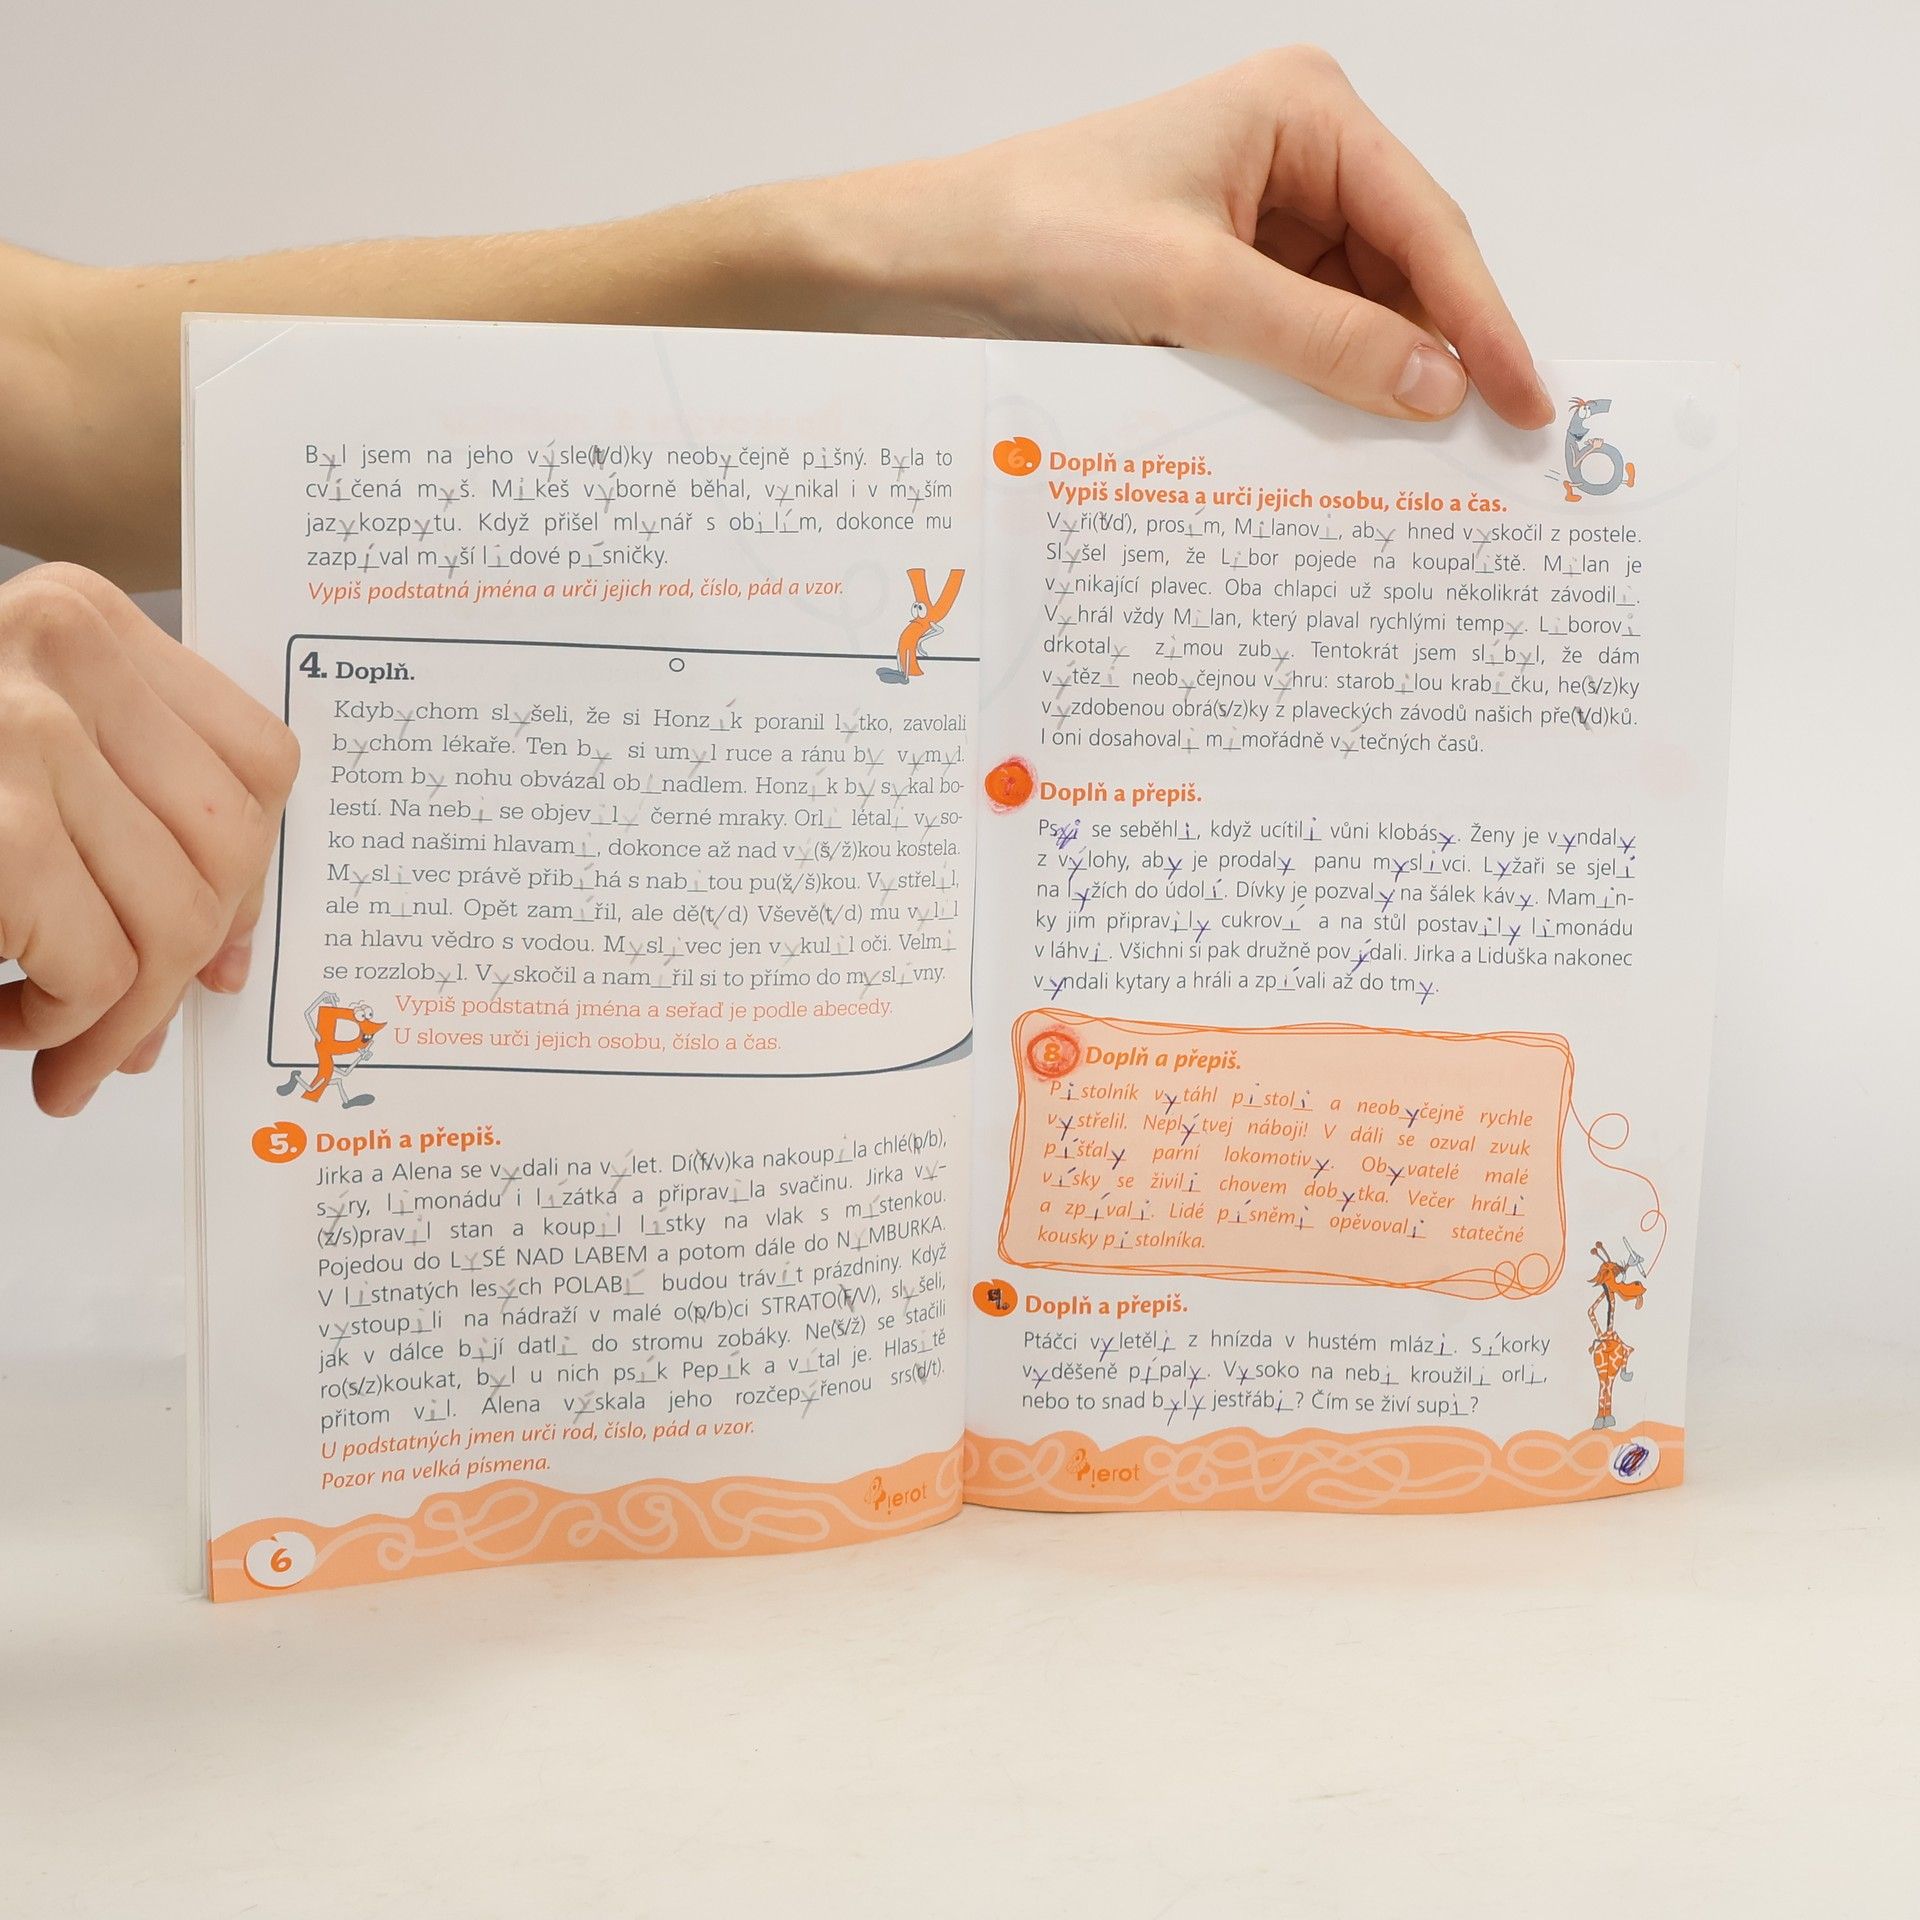 Byl jsem na jeho výsle(t/d)ky neobyčejně pišný. Byla to
cvičená myš. Mikeš výborně běhal, vynikal i v myším
jazykozpytu. Když přišel mlynář s obilím, dokonce mu
zazpíval myší lidové písničky.
Vypiš podstatná jména a urči jejich rod, číslo, pád a vzor.
4. Doplň.
Kdybychom slyšeli, že si Honzík poranil lýtko, zavolali
bychom lékaře. Ten by si umyl ruce a ránu by vymyl.
Potom by nohu obvázal obinadlem. Honzík by sykal bo-
lestí. Na nebi se objevily černé mraky. Orli létali vyso-
ko nad našimi hlavami, dokonce až nad vý(š/ž)kou kostela.
Myslivec právě přibíhá s nabitou pu(ž/š)kou. Vystřelil,
ale minul. Opět zamířil, ale dě(t/d) Vševě(t/d) mu vylil
na hlavu vědro s vodou. Myslivec jen vykulil oči. Velmi
se rozzlobyl. Vyskočil a namířil si to přímo do myslivny.
Vypiš podstatná jména a seřaď je podle abecedy.
U sloves urči jejich osobu, číslo a čas.
5. Doplň a přepiš.
Jirka a Alena se vydali na výlet. Dí(f/v)ka nakoupila chlé(p/b),
sýry, limonádu i lízátka a připravila svačinu. Jirka vy-
(z/s)pravil stan a koupil lístky na vlak s místenkou.
Pojedou do LYSÉ NAD LABEM a potom dále do NYMBURKA.
V listnatých lesých POLABÍ budou trávit prázdniny. Když
vystoupili na nádraží v malé o(p/b)ci STRATO(F/V), slyšeli,
jak v dálce bijí datli do stromu zobáky. Ne(š/ž) se stačili
ro(s/z)koukat, byl u nich psík Pepík a vítal je. Hlasitě
přitom vil. Alena výskala jeho rozčepýřenou srs(ď/t).
U podstatných jmen urči rod, číslo, pád a vzor.
Pozor na velká písmena.
Pierot
6
6. Doplň a přepiš.
Vypiš slovesa a urči jejich osobu, číslo a čas.
Vyři(ť/ď), prosím, Milanovi, aby hned vyskočil z postele.
Slyšel jsem, že Libor pojede na koupaliště. Milan je
vynikající plavec. Oba chlapci už spolu několikrát závodili.
Vyhrál vždy Milan, který plaval rychlými tempy. Liborovi
drkotaly zimou zuby. Tentokrát jsem slíbyl, že dám
výtězi neobyčejnou výhru: starobilou krabičku, he(s/z)ky
vyzdobenou obrá(s/z)ky z plaveckých závodů našich pře(t/d)ků.
I oni dosahovali mimořádně výtečných časů.
7 Doplň a přepiš.
Psi se seběhli, když ucítili vůni klobásy. Ženy je vyndaly
z výlohy, aby je prodaly panu myslivci. Lyžaři se sjeli
na lyžích do údolí. Dívky je pozvaly na šálek kávy. Mamin-
ky jim připravily cukroví a na stůl postavily limonádu
v láhvi. Všichni si pak družně povídali. Jirka a Liduška nakonec
vyndali kytary a hráli a zpívali až do tmy.
8. Doplň a přepiš.
Pistolník vytáhl pistoli a neobyčejně rychle
vystřelil. Neplýtvej náboji! V dáli se ozval zvuk
píšťaly parní lokomotivy. Obyvatelé malé
vísky se živili chovem dobytka. Večer hráli
a zpívali. Lidé písněmi opěvovali statečné
kousky pistolníka.
9. Doplň a přepiš.
Ptáčci vyletěli z hnízda v hustém mlází. Síkorky
vyděšeně pípaly. Vysoko na nebi kroužili orli,
nebo to snad byly jestřábi? Čím se živí supi?
Pierot